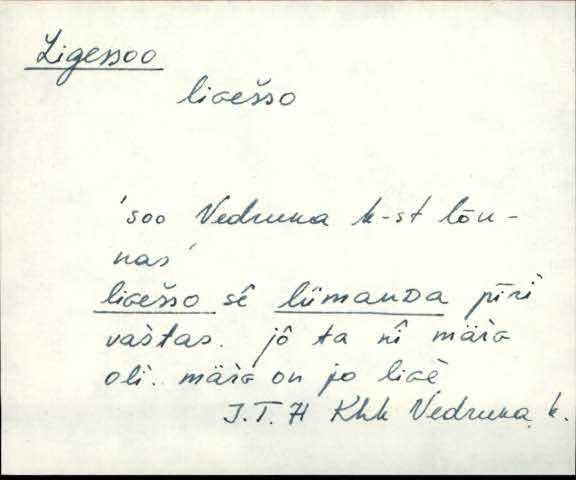 Ligessoo
liɢešso
'soo Vedruka k-st lõu-
nas'
liɢešso sê lümanᴅa pīri
vaštas. jô ta nî mäřɢ
oli. mäřɢ on jo liɢè
J.T. H Khk Vedruka k.